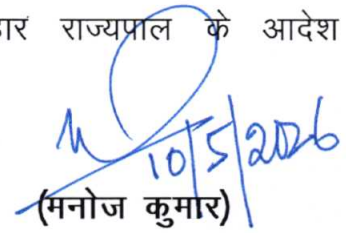 हार राज्यपाल के आदेश
10/5/2026
(मनोज कुमार)